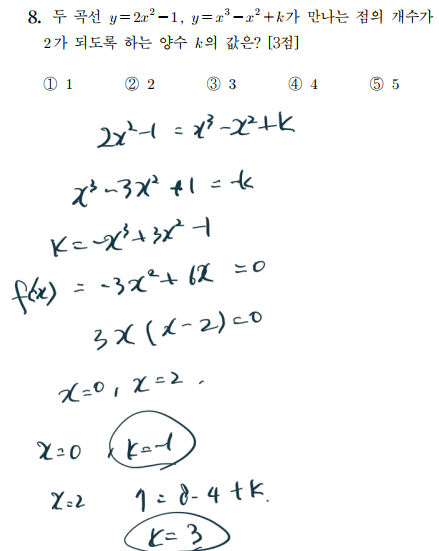 8. 두 곡선 y=2x²−1, y=x³−x²+k가 만나는 점의 개수가
2가 되도록 하는 양수 k의 값은? [3점]
① 1 ② 2 ③ 3 ④ 4 ⑤ 5
2x²-1 = x³-x²+k
x³-3x²+1 = -k
k = -x³+3x²-1
f'(x) = -3x²+6x = 0
3x(x-2)=0
x=0, x=2.
x=0 k=-1
x=2 7=8-4+k.
k=3